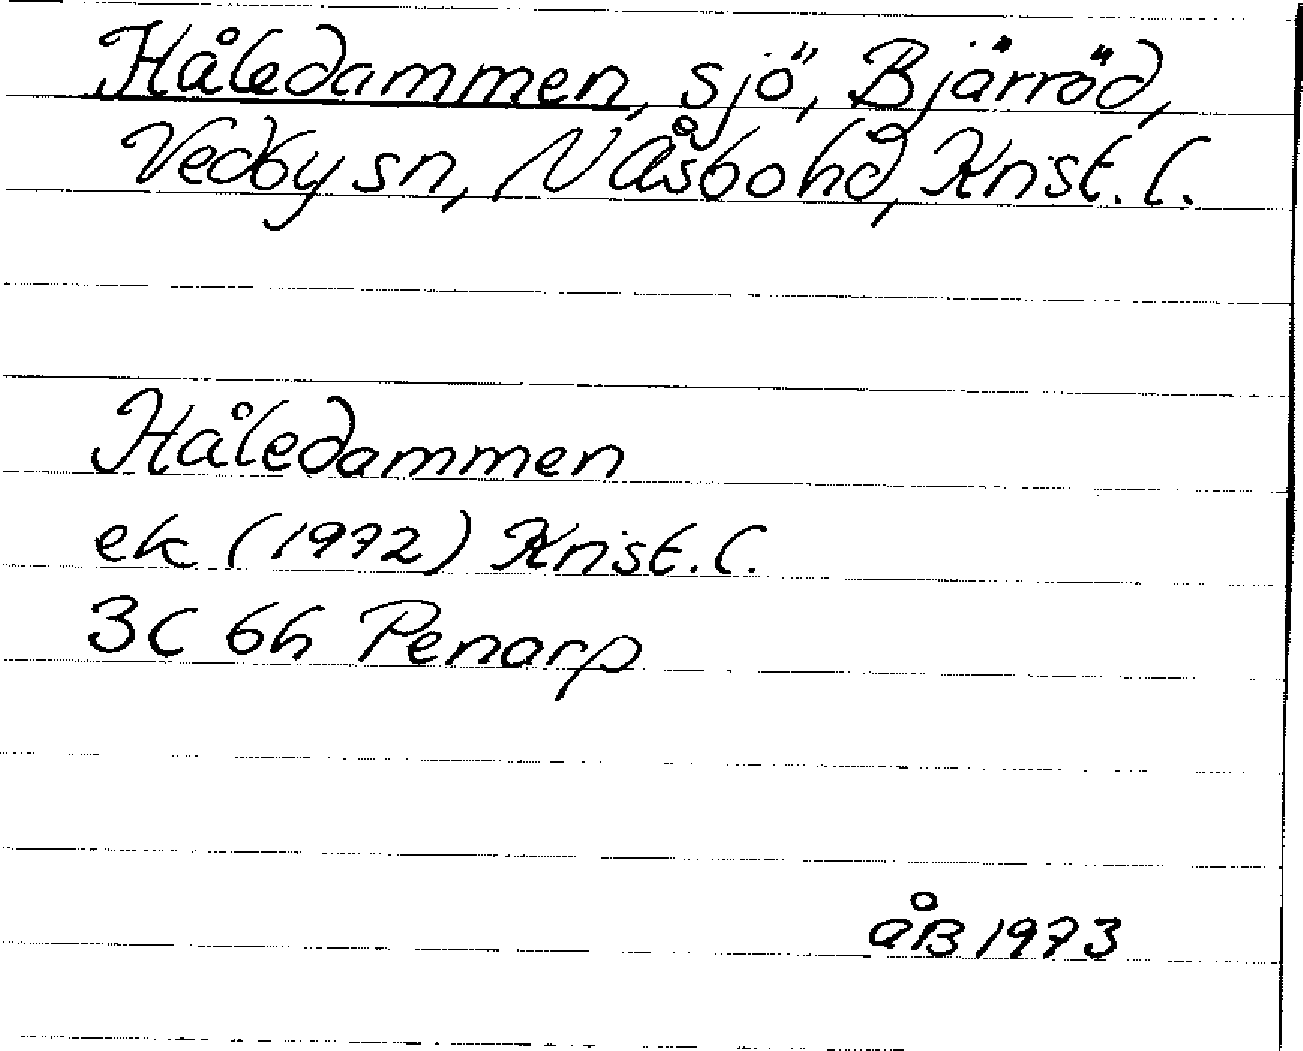 Håledammen, sjö, Bjärröd,
Vedby sn, N Åsbo hd, Krist. l.
Håledammen
ek (1972) Krist. l.
3C 6h Penarp
åB 1973